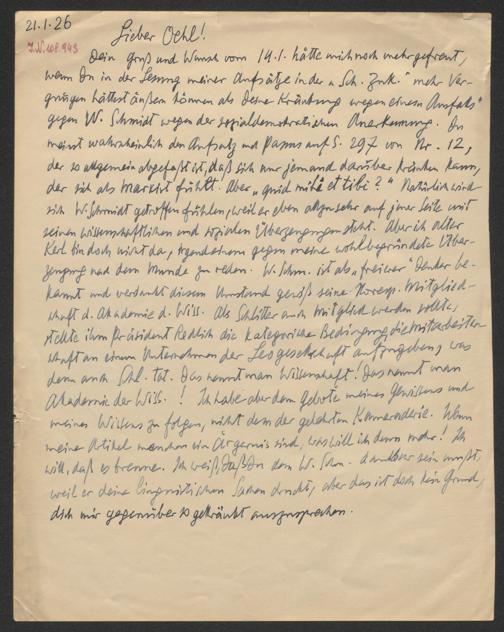 21.1.26
J.N. 108.943
Lieber Oehl!
Dein Gruß und Wunsch vom 14.1. hätte mich noch mehr gefreut,
wenn Du in der Lesung meiner Aufsätze in der „Sch. Zuk." mehr Ver-
gnügen hättest äußern können als Deine Kränkung wegen eines Ausfalls
gegen W. Schmidt wegen der sozialdemokratischen Anerkennung. Du
meinst wahrscheinlich den Aufsatz und Passus auf S. 297 von Nr. 12,
der so allgemein abgefaßt ist, daß sich nur jemand darüber kränken kann,
der sich als Marxist fühlt. Aber „quid mihi et tibi?" Natürlich wird
sich W. Schmidt getroffen fühlen, weil er eben allzu sehr auf jener Seite mit
seinen wissenschaftlichen und sozialen Überzeugungen steht. Aber ich alter
Kerl bin doch nicht da, irgendeinem gegen meine wohlbegründete Über-
zeugung nach dem Munde zu reden. W. Schm. ist als „freierer" Denker be-
kannt und verdankt diesem Umstand gewiß seine Korresp. Mitglied-
schaft d. Akademie d. Wiss. Als Schlitter auch Mitglied werden sollte,
stellte ihm Präsident Redlich die kategorische Bedingung, die Mitarbeiter-
schaft an einem Unternehmen der Leogesellschaft aufzugeben, was
denn auch Schl. tat. Das nennt man Wissenschaft! Das nennt man
Akademie der Wiss.! Ich habe aber dem Gebote meines Gewissens und
meines Wissens zu folgen, nicht dem der gelehrten Kameraderie. Wenn
meine Artikel manchen ein Ärgernis sind, was will ich denn mehr! Ich
will, daß es brenne. Ich weiß, daß Du dem W. Schm. dankbar sein mußt,
weil er deine linguistischen Sachen druckt, aber das ist doch kein Grund,
dich mir gegenüber so gekränkt auszusprechen.